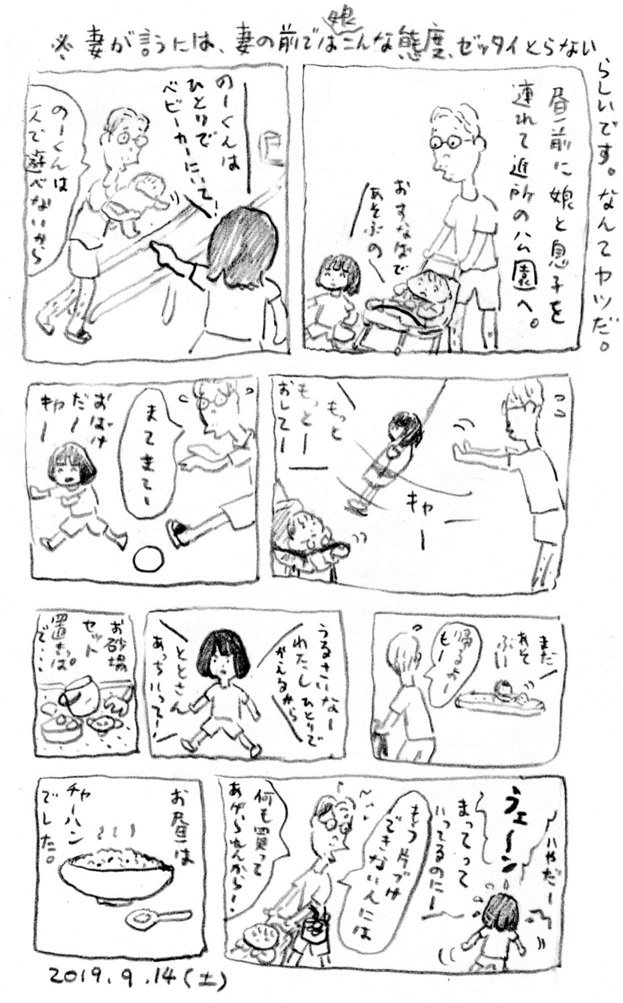 ※ 妻が言うには、妻の前では娘こんな態度、ゼッタイとらない
らしいです。なんてヤツだ。
昼前に娘と息子を
連れて近所の公園へ。
おすなばで
あそぶの
のーくんは
ひとりで
ベビーカーにいて!
のーくんは
一人で遊べないから
もっと
もっとー
おしてー
キャー
まてまてー
おばけ
だー
キャー
まだー
あそ
ぶー
帰るよー
もー
うるさいなー
わたしひとりで
かえるから
ととさん
あっちいって!
お砂場
セット
置きっぱ
で・・・
いやだー
うぇーン
まってって
いってるのにー
もう片づけ
できない人には
何も買って
あげられんから!
お昼は
チャーハン
でした。
2019.9.14(土)